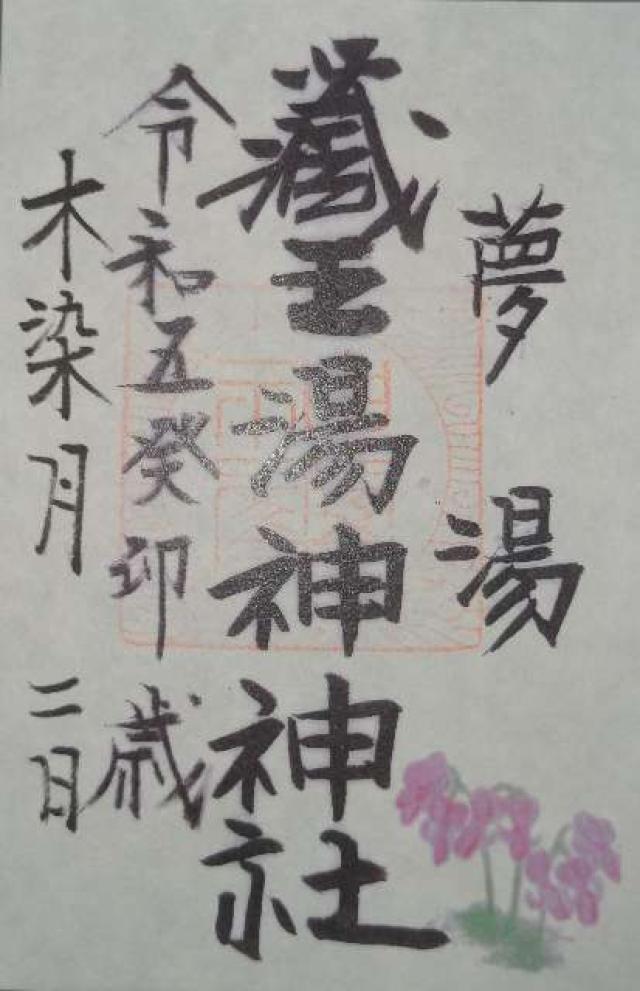 夢湯
藏王湯神神社
令和五癸卯歳
木染月二日